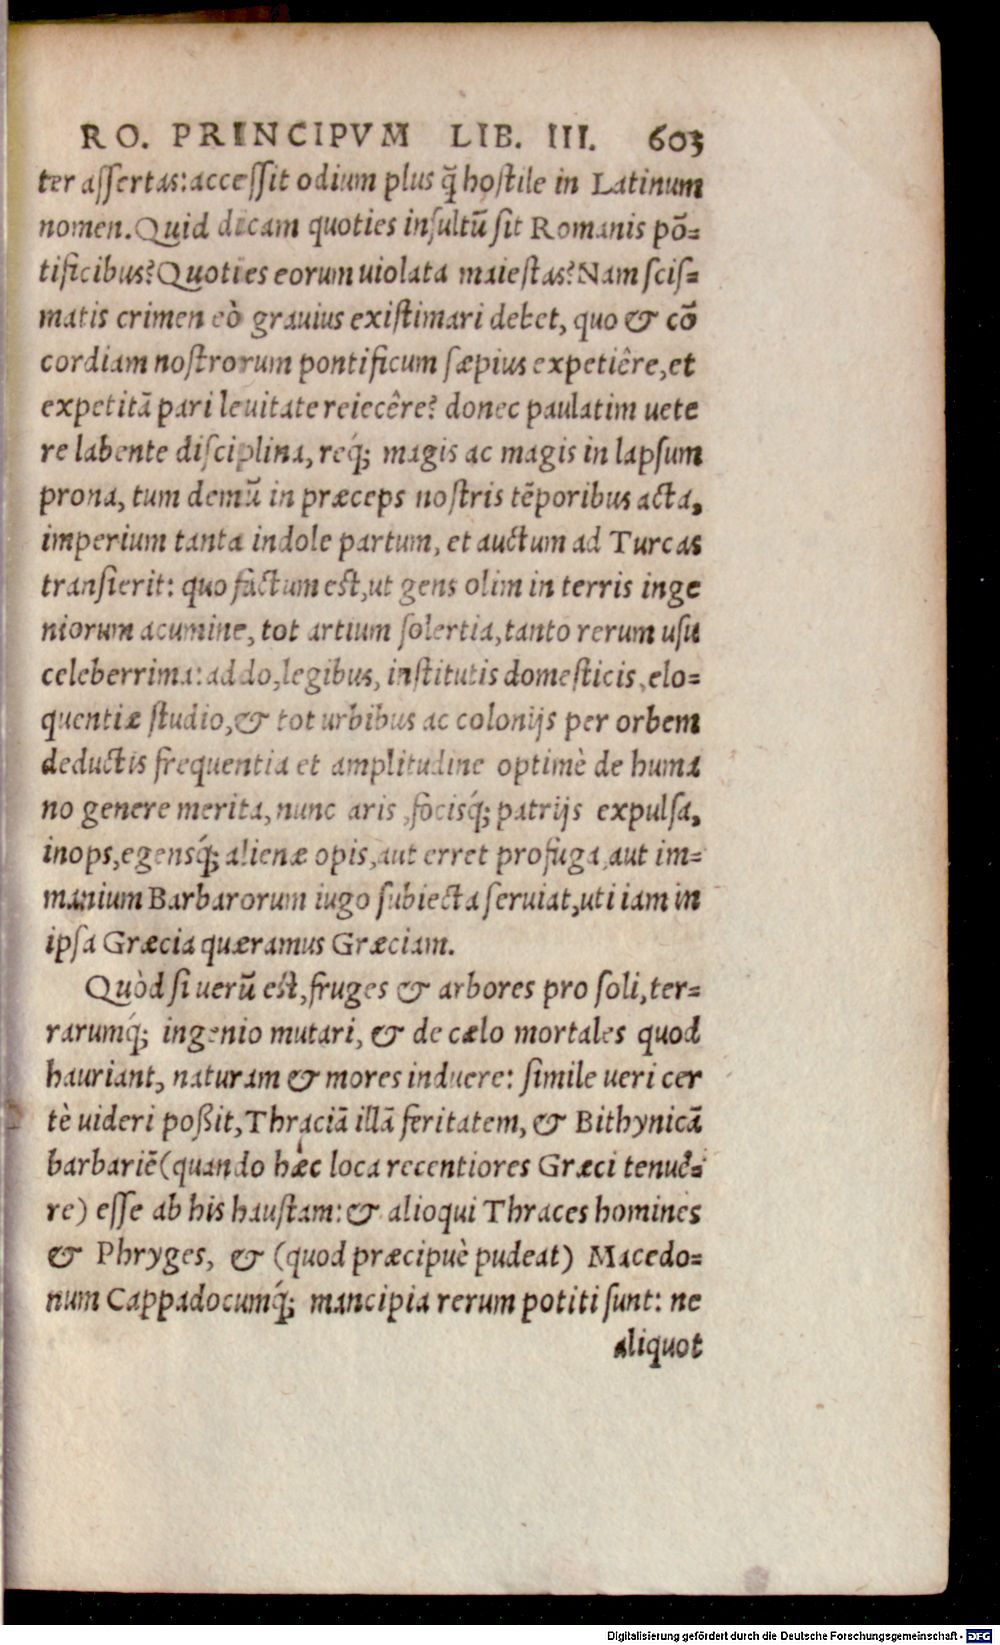 RO. PRINCIPVM LIB. III. 603
ter assertas: accessit odium plus q̃ hostile in Latinum
nomen. Quid dicam quoties insultũ sit Romanis põ=
tificibus? Quoties eorum uiolata maiestas? Nam scis=
matis crimen eò grauius existimari debet, quo & cõ
cordiam nostrorum pontificum sæpius expetiêre, et
expetitã pari leuitate reiecêre? donec paulatim uete
re labente disciplina, req́; magis ac magis in lapsum
prona, tum demũ in præceps nostris tẽporibus acta,
imperium tanta indole partum, et auctum ad Turcas
transierit: quo factum est, ut gens olim in terris inge
niorum acumine, tot artium solertia, tanto rerum usu
celeberrima: addo, legibus, institutis domesticis, elo=
quentiæ studio, & tot urbibus ac colonijs per orbem
deductis frequentia et amplitudine optimè de huma
no genere merita, nunc aris, focisq́; patrijs expulsa,
inops, egensq́; alienæ opis, aut erret profuga, aut im=
manium Barbarorum iugo subiecta seruiat, uti iam in
ipsa Græcia quæramus Græciam.
Quòd si uerũ est, fruges & arbores pro soli, ter=
rarumq́; ingenio mutari, & de cælo mortales quod
hauriant, naturam & mores induere: simile ueri cer
tè uideri poßit, Thraciã illã feritatem, & Bithynicã
barbariẽ (quando hæc loca recentiores Græci tenuê=
re) esse ab his haustam: & alioqui Thraces homines
& Phryges, & (quod præcipuè pudeat) Macedo=
num Cappadocumq́; mancipia rerum potiti sunt: ne
aliquot
Digitalisierung gefördert durch die Deutsche Forschungsgemeinschaft - DFG